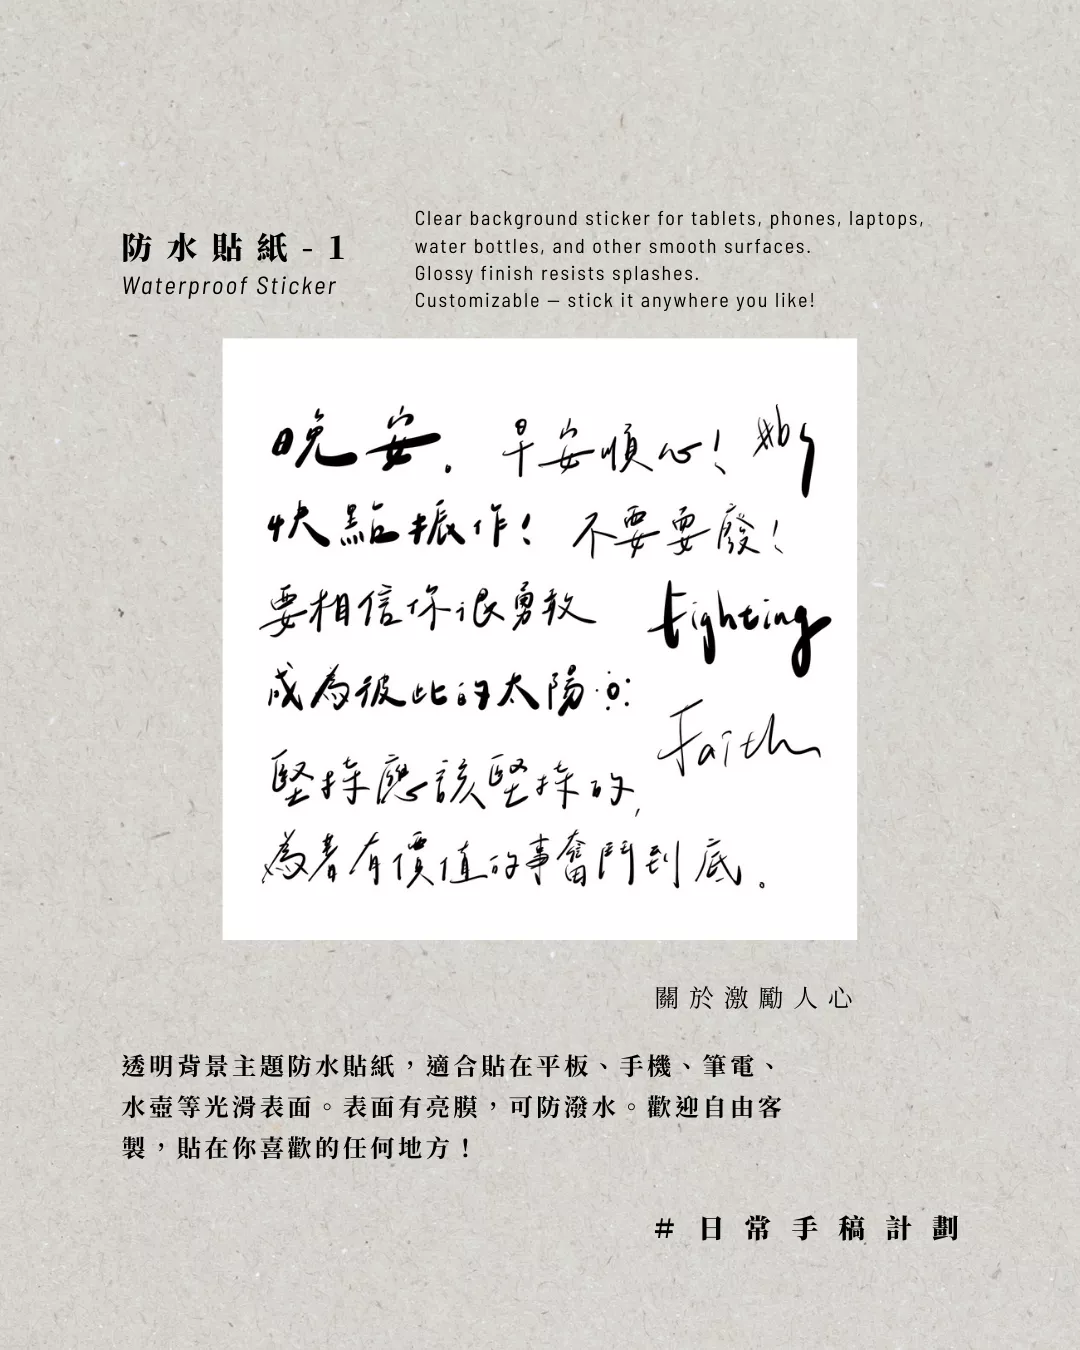 防水貼紙-1
Waterproof Sticker
Clear background sticker for tablets, phones, laptops,
water bottles, and other smooth surfaces.
Glossy finish resists splashes.
Customizable – stick it anywhere you like!
晚安.
早安順心!
快點振作!
不要耍廢!
要相信你很勇敢
Fighting
成為彼此的太陽
Faith
堅持應該堅持的,
為著有價值的事奮鬥到底。
關於激勵人心
透明背景主題防水貼紙，適合貼在平板、手機、筆電、
水壺等光滑表面。表面有亮膜，可防潑水。歡迎自由客
製，貼在你喜歡的任何地方！
#日常手稿計劃